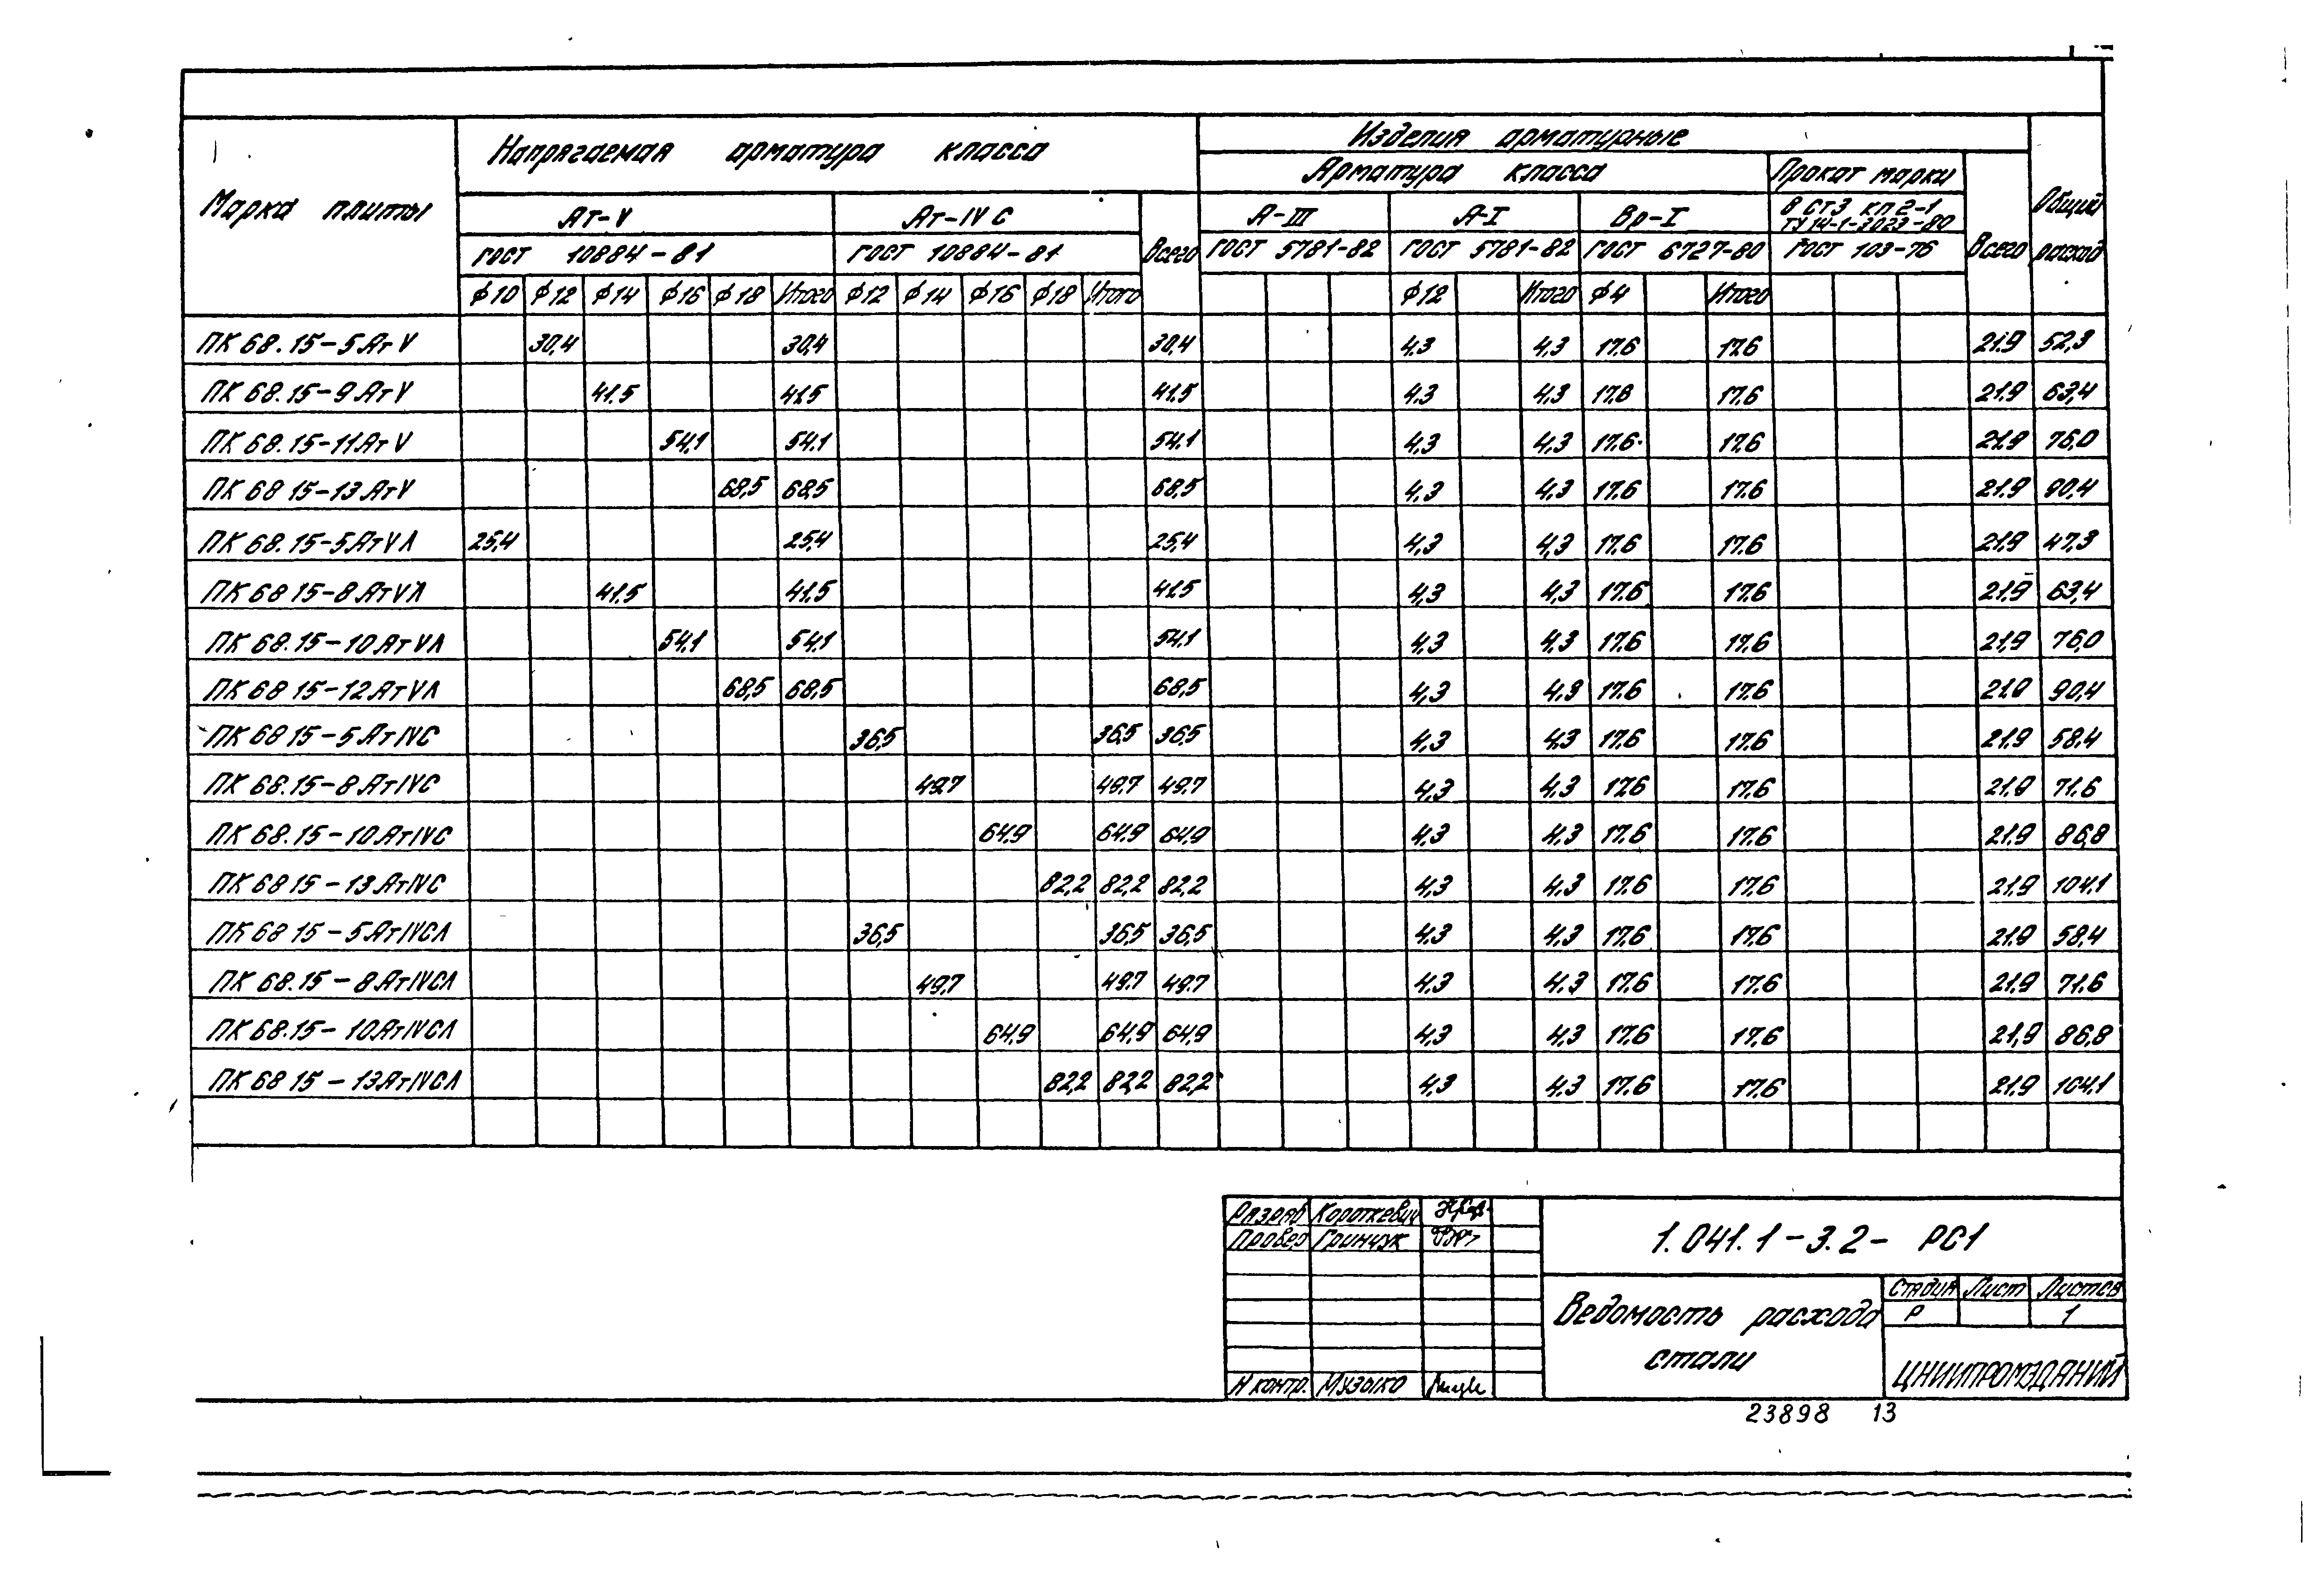 Марка плиты
Напрягаемая арматура класса
Изделия арматурные
Общий расход
Арматура класса
Прокат марки
Ат-V
Ат-IV С
Всего
А-III
А-I
Вр-I
В СТ3 кп2-1
ТУ14-1-3023-80
Всего
ГОСТ 10884-81
ГОСТ 10884-81
ГОСТ 5781-82
ГОСТ 5781-82
ГОСТ 6727-80
ГОСТ 103-76
ф10 ф12 ф14 ф16 ф18 Итого ф12 ф14 ф16 ф18 Итого ф12 Итого ф4 Итого
ПК 68.15-5АтV 30,4 30,4 30,4 4,3 4,3 17.6 17.6 21.9 52,3
ПК 68.15-9АтV 41.5 41.5 41.5 4.3 4.3 17.6 17.6 21.9 63,4
ПК 68.15-11АтV 54,1 54.1 54.1 4,3 4,3 17.6 17.6 21.9 76,0
ПК 68 15-13АтV 68,5 68,5 68,5 4,3 4,3 17.6 17.6 21.9 90,4
ПК 68.15-5АтVЛ 25,4 25,4 25,4 4,3 4,3 17.6 17.6 21.9 47,3
ПК 68 15-8АтVЛ 41.5 41.5 41.5 4,3 4,3 17.6 17.6 21.9 63,4
ПК 68.15-10АтVЛ 54,1 54,1 54,1 4,3 4,3 17.6 17.6 21,9 76,0
ПК 68 15-12АтVЛ 68,5 68,5 68,5 4,3 4.3 17.6 17.6 21.9 90,4
ПК 68 15-5АтIVС 36,5 36,5 36,5 4,3 4.3 17.6 17.6 21.9 58.4
ПК 68.15-8АтIVС 49.7 49.7 49.7 4,3 4.3 17.6 17.6 21.9 71.6
ПК 68.15-10АтIVС 64.9 64.9 64.9 4,3 4.3 17.6 17.6 21.9 86,8
ПК 68 15-13АтIVС 82,2 82,2 82,2 4,3 4.3 17.6 17.6 21.9 104.1
ПК 68 15-5АтIVСЛ 36,5 36,5 36,5 4.3 4.3 17.6 17.6 21.9 58,4
ПК 68.15-8АтIVСЛ 49,7 49.7 49.7 4.3 4.3 17.6 17.6 21.9 71.6
ПК 68.15-10АтIVСЛ 64,9 64,9 64,9 4.3 4.3 17.6 17.6 21,9 86,8
ПК 68 15-13АтIVСЛ 82,2 82,2 82,2 4,3 4.3 17.6 17.6 21.9 104.1
Разраб Короткевич
Провер Гринчук
Н контр. Музыко
1.041.1-3.2- РС1
Ведомость расхода
стали
Стадия Лист Листов
Р 1
ЦНИИПРОМЗДАНИЙ
23898 13